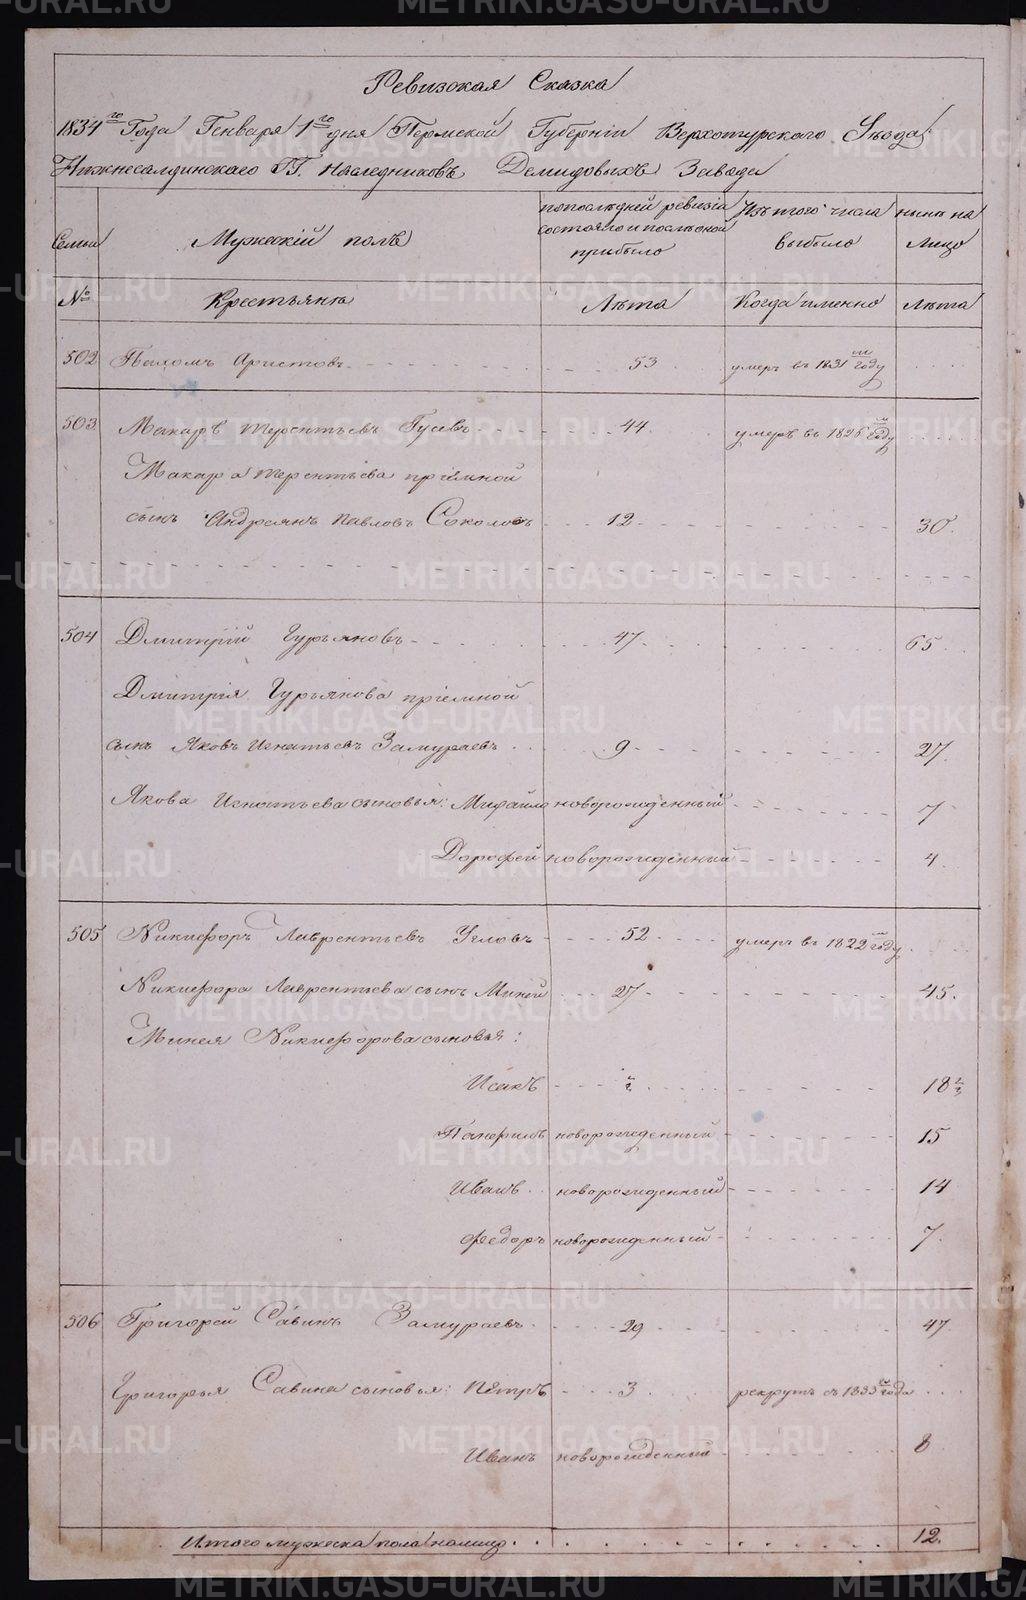 Ревизская Сказка
1834го Года Генваря 1го дня Пермской Губернiи Верхотурскаго Уѣзда
Нижнесалдинскаго ГГ. Наследниковъ Демидовыхъ Завода
Семьи
Мужескiй полъ
попослѣдней ревизiи состояло и послѣ оной прибыло
Изъ того числа выбыло
нынѣ на лицо
№
Крестьяня
Лѣта
Когда именно
Лѣта
502 Пахомъ Аристовъ 53 умеръ въ 1831м году
503 Макаръ терентьевъ Гусевъ 44 умеръ въ 1826м году
Макара терентьева прiемной
сынъ Андреянъ павловъ Соколовъ 12 30
504 Дмитрiй Гурьяновъ 47 65
Дмитрiя Гурьянова прiемной
сынъ Яковъ Игнатьевъ Замураевъ 9 27
Якова Игнатьева сыновья: Михайло новорожденный 7
Дорофей новорожденный 4
505 Никифоръ Лаврентьевъ Угловъ 52 умеръ въ 1822м году
Никифора Лаврентьева сынъ Миней 27 45
Минея Никифорова сыновья:
Исакъ 18½
Панфилъ новорожденный 15
Иванъ новорожденный 14
Федоръ новорожденный 7
506 Григорей Савинъ Замураевъ 29 47
Григорья Савина сыновья: Петръ 3 рекрутъ съ 1833го года
Иванъ новорожденный 8
Итого мужеска пола налицо 12
METRIKI.GASO-URAL.RU